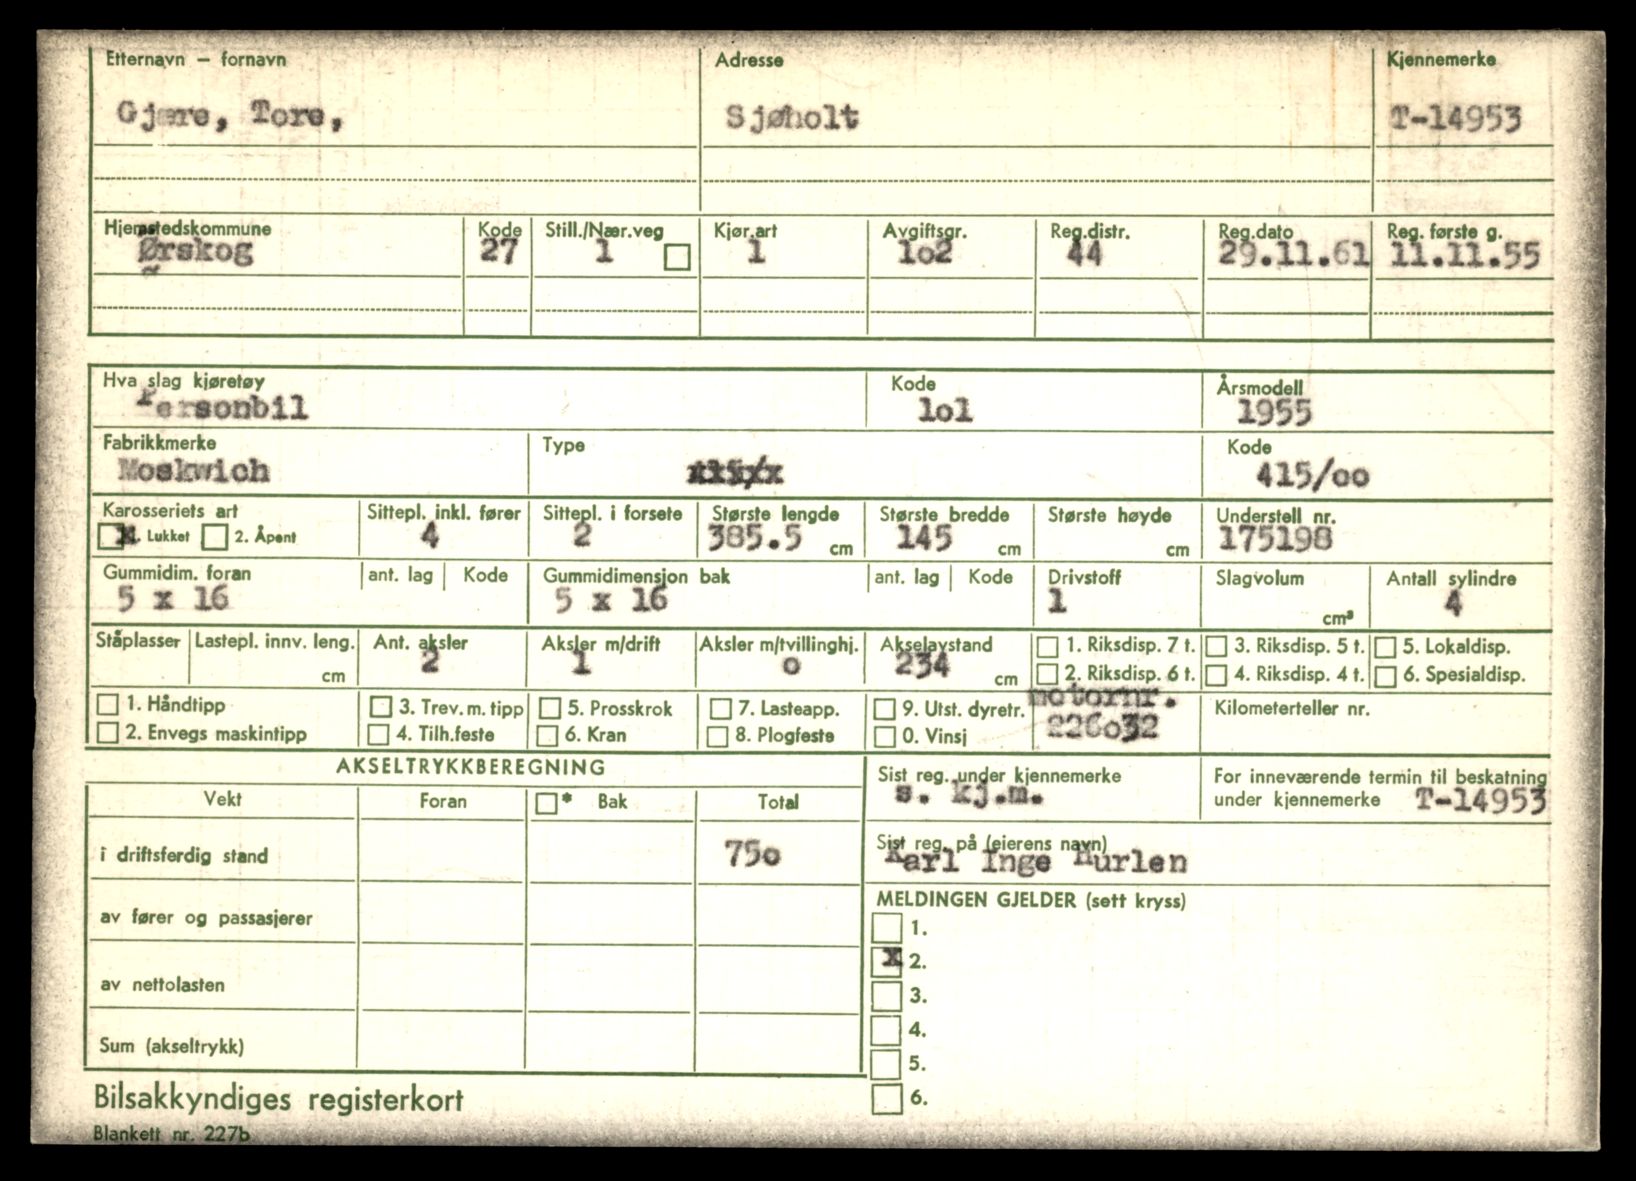 Etternavn – fornavn Adresse Kjennemerke
Gjære, Tore, Sjøholt T-14953
Hjemstedskommune Kode Still./Nær.veg Kjør.art Avgiftsgr. Reg.distr. Reg.dato Reg. første g.
Ørskog 27 1 1 1o2 44 29.11.61 11.11.55
Hva slag kjøretøy Kode Årsmodell
Personbil 1o1 1955
Fabrikkmerke Type Kode
Moskwich 415/oo
Karosseriets art Sittepl. inkl. fører Sittepl. i forsete Største lengde Største bredde Største høyde Understell nr.
x 1. Lukket 2. Åpent 4 2 385.5 cm 145 cm cm 175198
Gummidim. foran ant. lag Kode Gummidimensjon bak ant. lag Kode Drivstoff Slagvolum Antall sylindre
5 x 16 5 x 16 1 cm³ 4
Ståplasser Lastepl. innv. leng. Ant. aksler Aksler m/drift Aksler m/tvillinghj. Akselavstand 1. Riksdisp. 7 t. 3. Riksdisp. 5 t. 5. Lokaldisp.
cm 2 1 o 234 cm 2. Riksdisp. 6 t. 4. Riksdisp. 4 t. 6. Spesialdisp.
1. Håndtipp 3. Trev. m. tipp 5. Prosskrok 7. Lasteapp. 9. Utst. dyretr. motornr. Kilometerteller nr.
2. Envegs maskintipp 4. Tilh.feste 6. Kran 8. Plogfeste 0. Vinsj 226o32
AKSELTRYKKBEREGNING
Vekt Foran * Bak Total
i driftsferdig stand 75o
av fører og passasjerer
av nettolasten
Sum (akseltrykk)
Sist reg. under kjennemerke For inneværende termin til beskatning
s. kj.m. under kjennemerke T-14953
Sist reg. på (eierens navn)
Karl Inge Hurlen
MELDINGEN GJELDER (sett kryss)
1.
x 2.
3.
4.
5.
6.
Bilsakkyndiges registerkort
Blankett nr. 227b